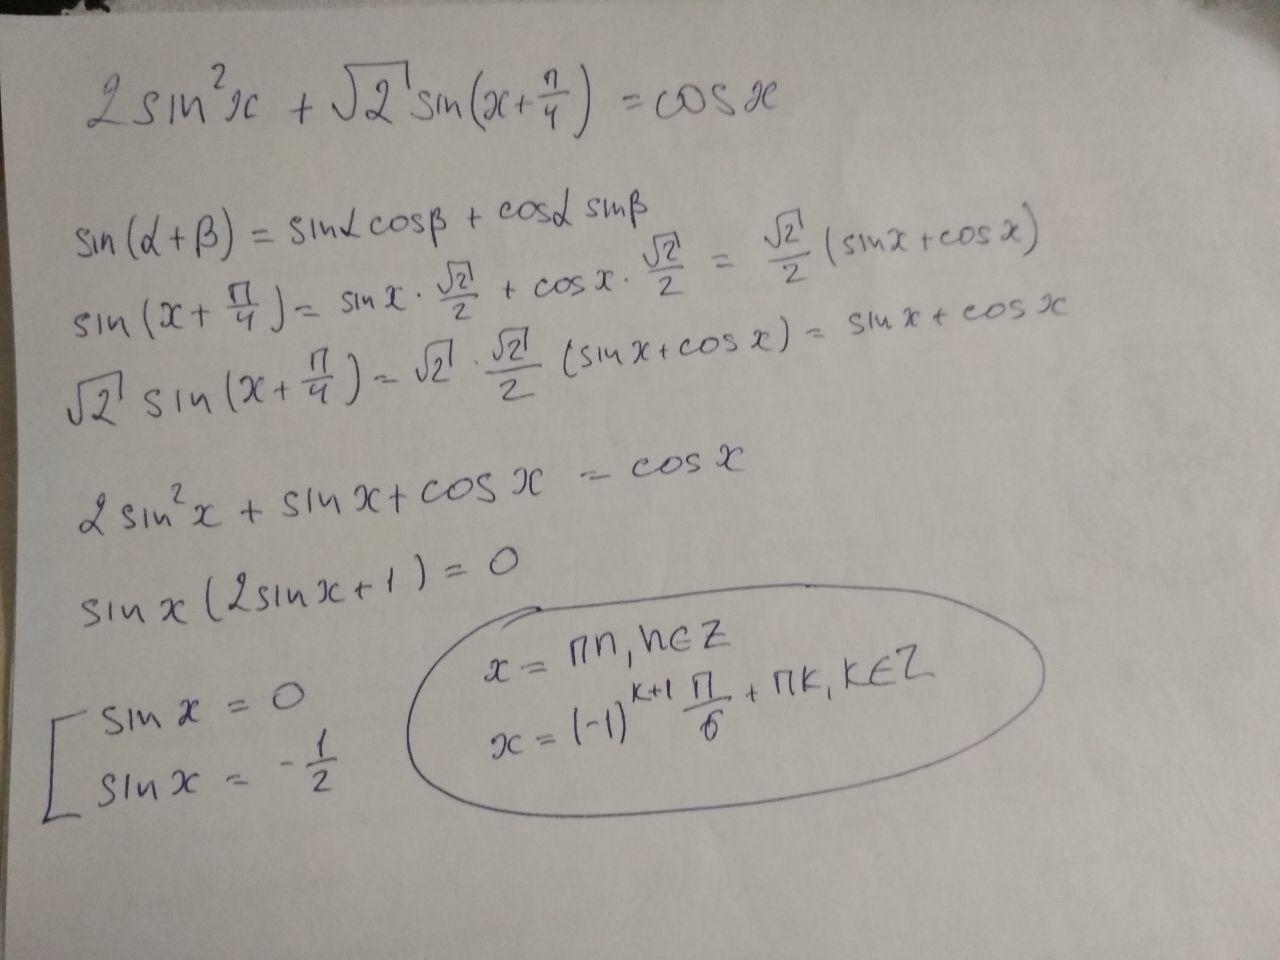 2 sin²x + √2 sin(x + π/4) = cos x
sin(α + β) = sinα cosβ + cosα sinβ
sin(x + π/4) = sin x · √2/2 + cos x · √2/2 = √2/2 (sin x + cos x)
√2 sin(x + π/4) = √2 · √2/2 (sin x + cos x) = sin x + cos x
2 sin²x + sin x + cos x = cos x
sin x (2 sin x + 1) = 0
[ sin x = 0
sin x = - 1/2
x = πn, n ∈ Z
x = (-1)^(k+1) π/6 + πk, k ∈ Z